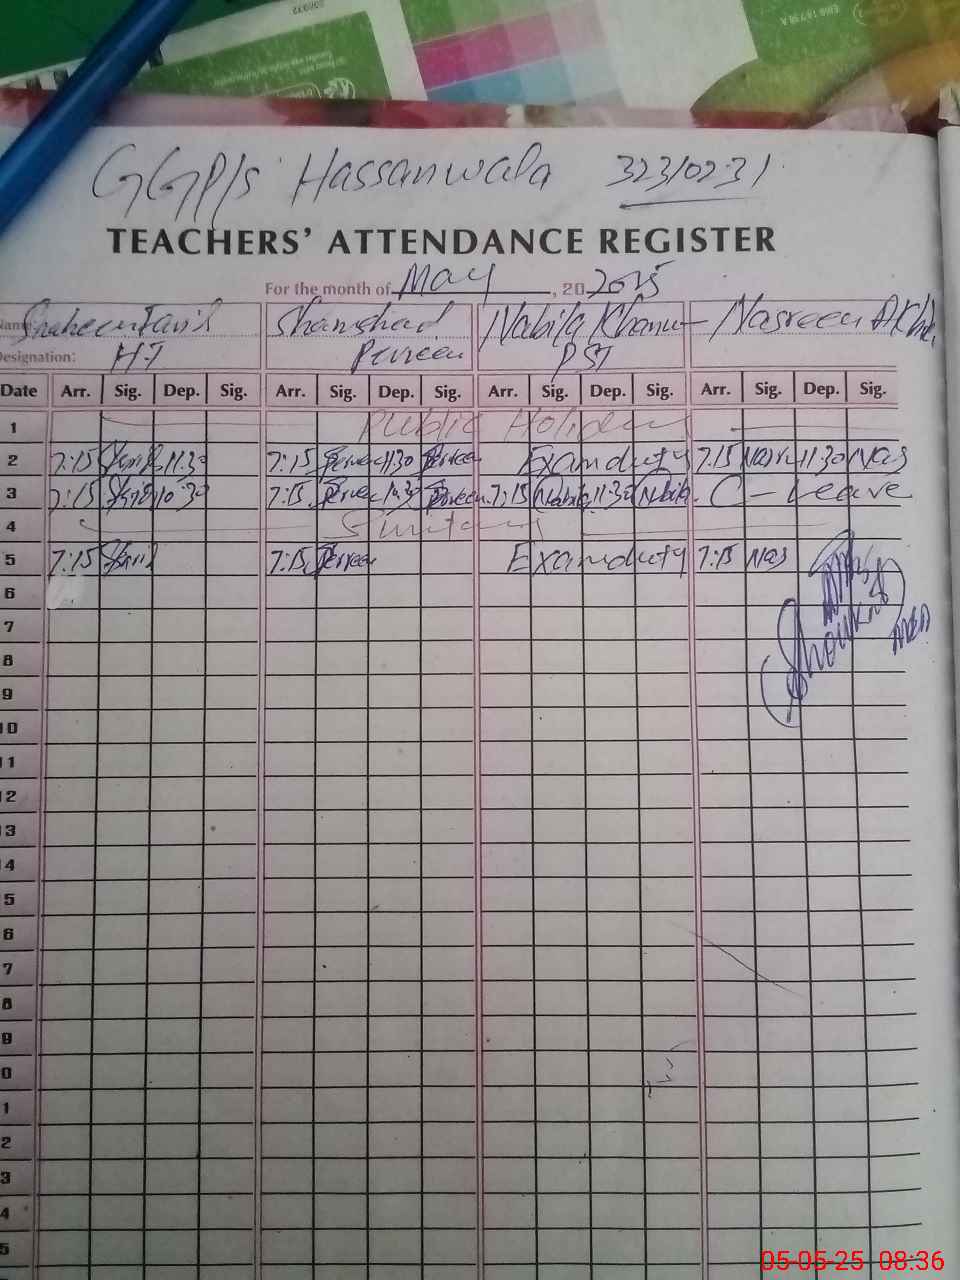 GGP/s Hassanwala 32310231
TEACHERS' ATTENDANCE REGISTER
For the month of May, 20 2025
Name: Shaheen Shamshad Nabila Khanum Nasreen Akhter
Designation: H.T Perveen PST
Date Arr. Sig. Dep. Sig. Arr. Sig. Dep. Sig. Arr. Sig. Dep. Sig. Arr. Sig. Dep. Sig.
1 Public Holiday
2 7:15 11:30 7:15 Perveen 11:30 Perveen Exam duty 7:15 Nasr 11:30 Nas
3 7:15 10:30 7:15 Perveen Perveen 7:15 Nabila 11:30 Nabila C-Leave
4
5 7:15 7:15 Perveen Exam duty 7:15 Nas
6
7 Shoukat
8
9
10
11
12
13
14
5
6
7
8
9
0
1
2
3
4
5
05-05-25 08:36